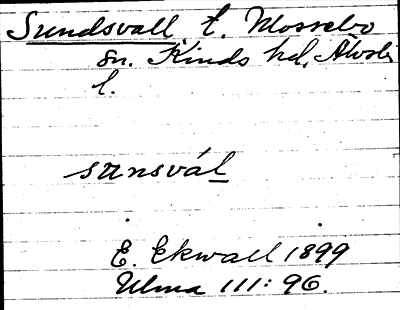 Sundsvall t. Mossebo
sn. Kinds hd, Älvsb
l.
sunsvál
E. Ekwall 1899
Ulma 111: 96.